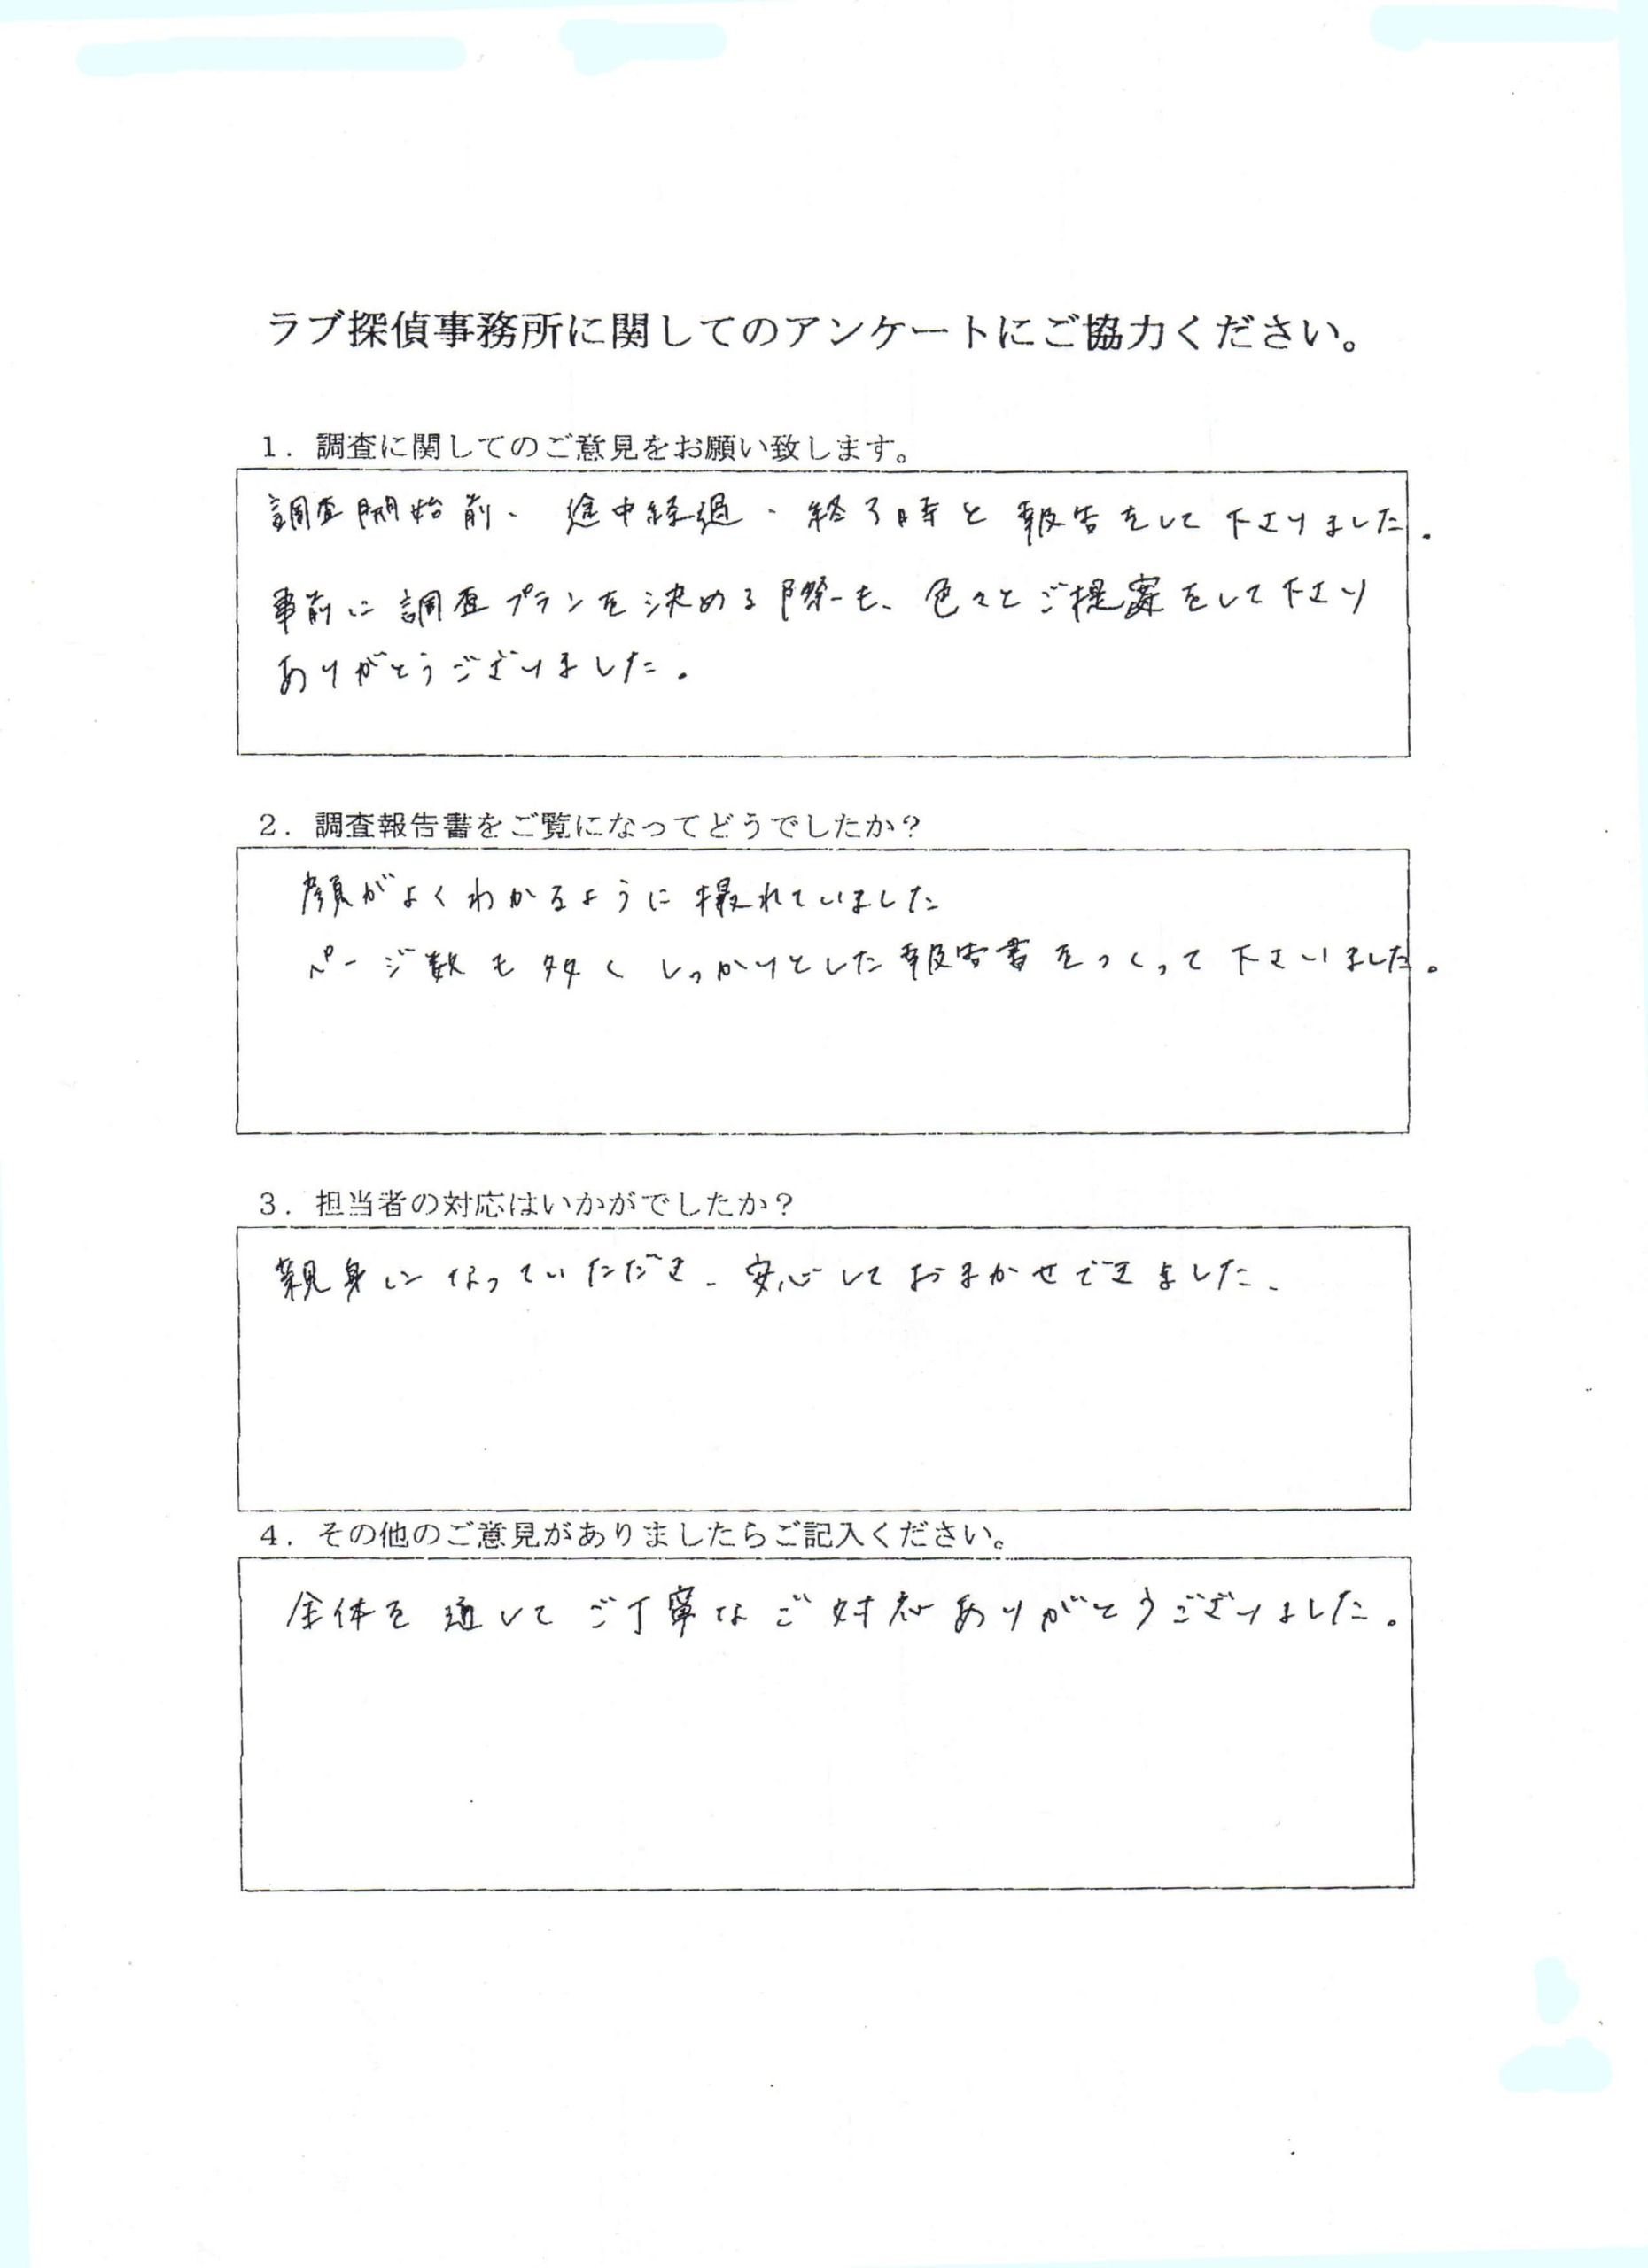 ラブ探偵事務所に関してのアンケートにご協力ください。
1．調査に関してのご意見をお願い致します。
調査開始前、途中経過、終了時と報告をして下さりました。
事前に調査プランを決める際も、色々とご提案をして下さり
ありがとうございました。
2．調査報告書をご覧になってどうでしたか？
顔がよくわかるように撮れていました
ページ数も多くしっかりとした報告書をつくって下さいました。
3．担当者の対応はいかがでしたか？
親身になっていただき、安心しておまかせできました、
4．その他のご意見がありましたらご記入ください。
全体を通してご丁寧なご対応ありがとうございました。